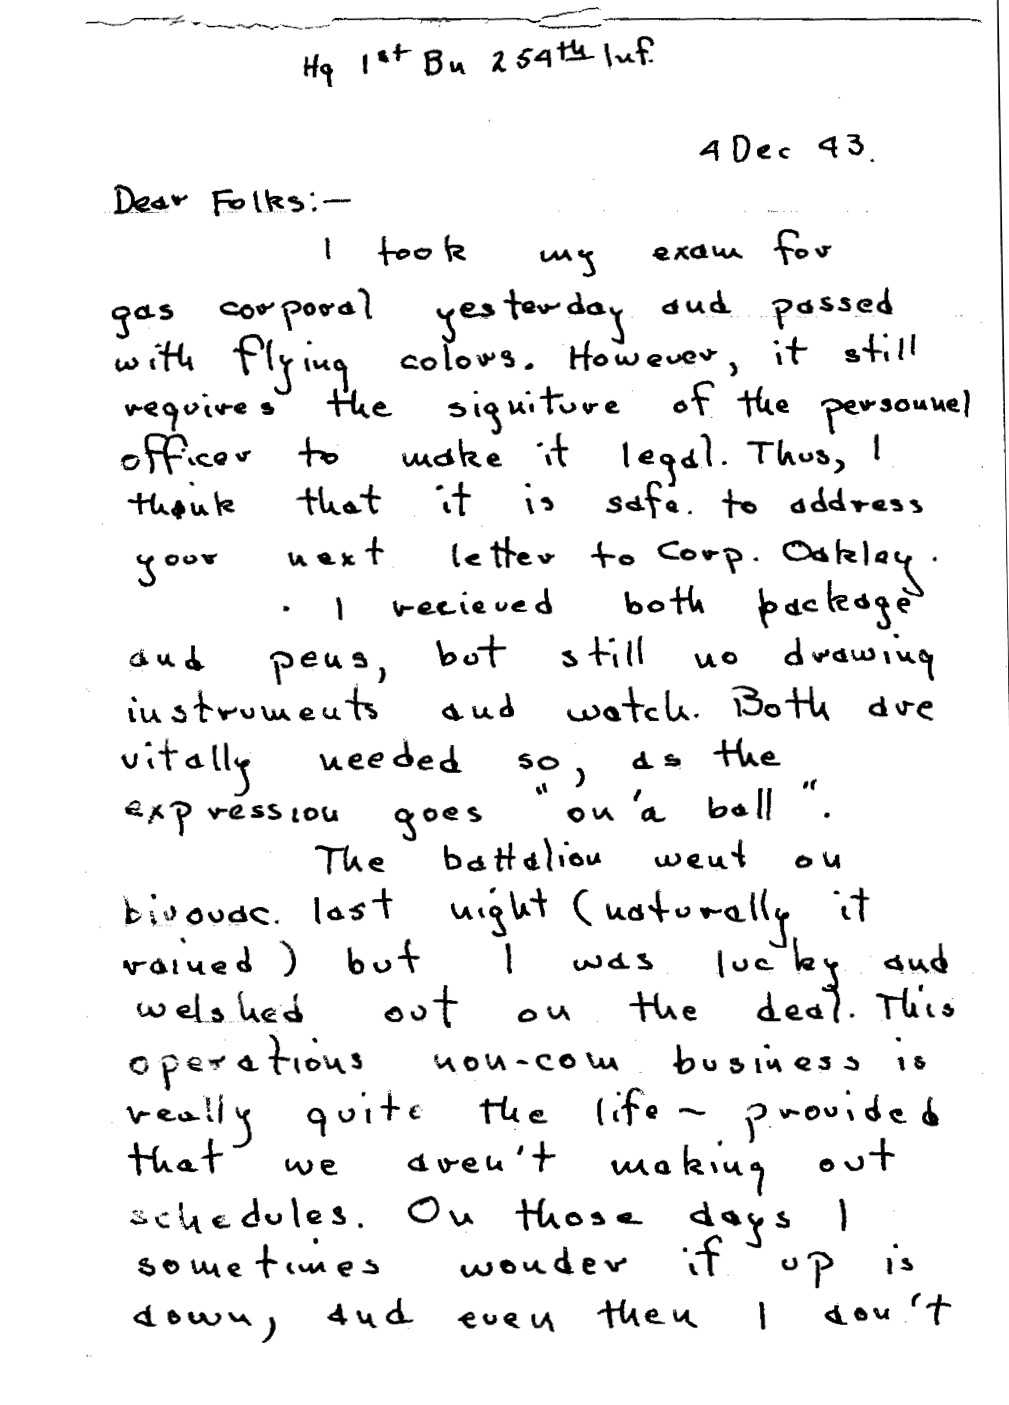 Hq 1st Bn 254th Inf.
4 Dec 43.
Dear Folks:—
I took my exam for
gas corporal yesterday and passed
with flying colors. However, it still
requires the signiture of the personnel
officer to make it legal. Thus, I
think that it is safe. to address
your next letter to Corp. Oakley.
I recieved both package
and pens, but still no drawing
instruments and watch. Both are
vitally needed so, as the
expression goes "on 'a ball".
The battalion went on
bivouac. last night (naturally it
rained) but I was lucky and
welshed out on the deal. This
operations non-com business is
really quite the life ~ provided
that we aren't making out
schedules. On those days I
sometimes wonder if up is
down, and even then I don't